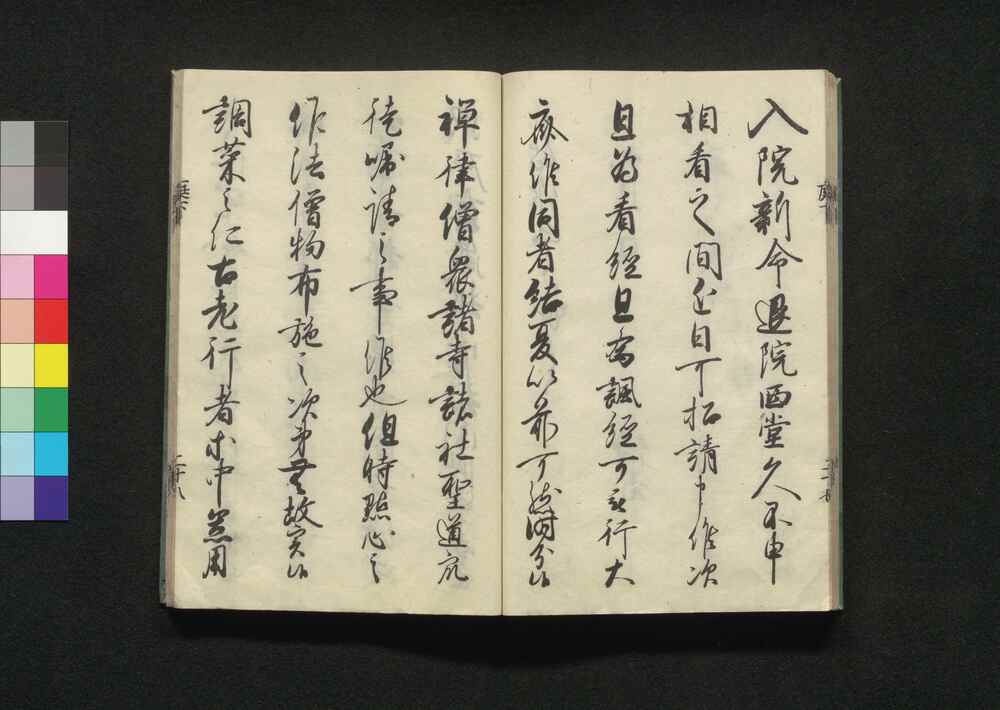 入院新命退院西堂久不申
相看之間近日可招請申候次
且為看経且為諷経可被行大
齋候同者結夏以前可然時分候
禅律僧衆諸寺諸社聖道
徒嘱請之事候也但時點心之
作法僧物布施之次第無故実候
調菜之仁古老行者求中器用